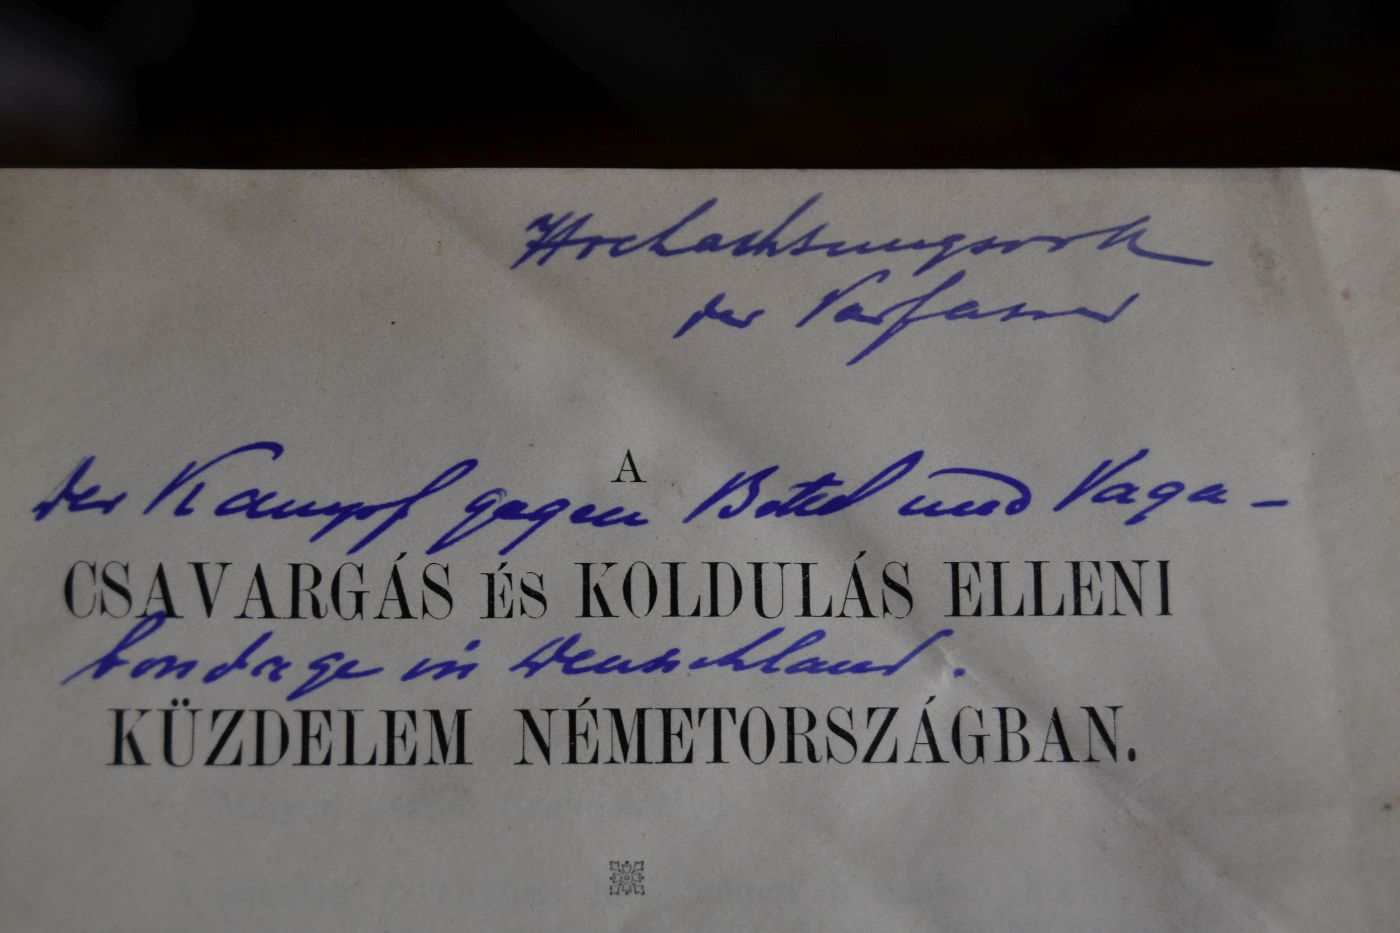 Hochachtungsvoll
der Verfasser
A
der Kampf gegen Bettel und Vaga-
CSAVARGÁS ÉS KOLDULÁS ELLENI
bondage in Deutschland.
KÜZDELEM NÉMETORSZÁGBAN.